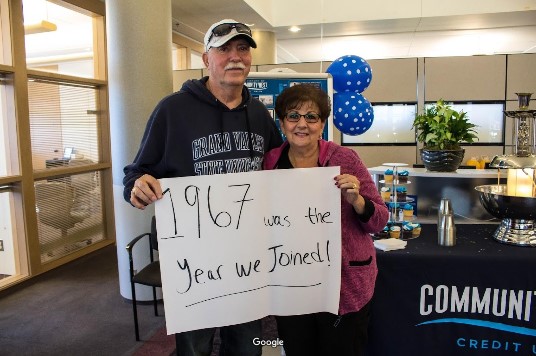 GRAND VALLEY
STATE
1967 was the
year we Joined!
COMMUNI
CREDIT
Google